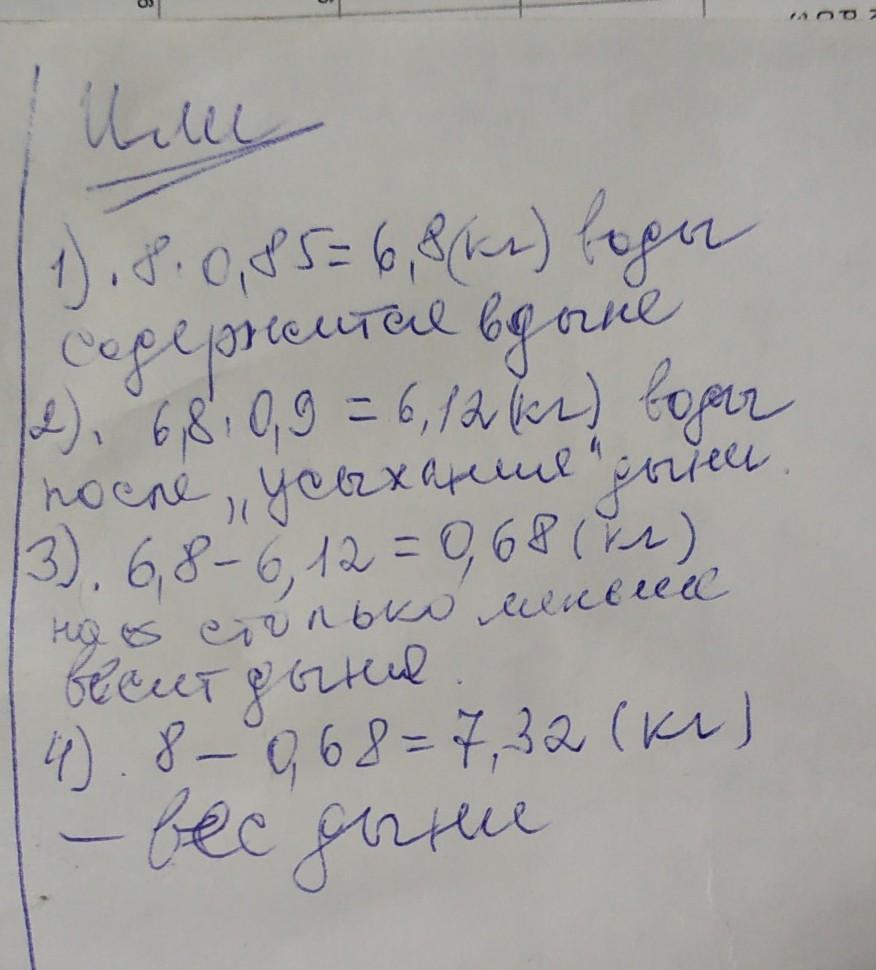 Или
1). 8 · 0,85 = 6,8 (кг) воды
содержится в дыне
2). 6,8 · 0,9 = 6,12 (кг) воды
после „усыхания“ дыни.
3). 6,8 – 6,12 = 0,68 (кг)
на столько меньше
весит дыня.
4). 8 – 0,68 = 7,32 (кг)
– вес дыни